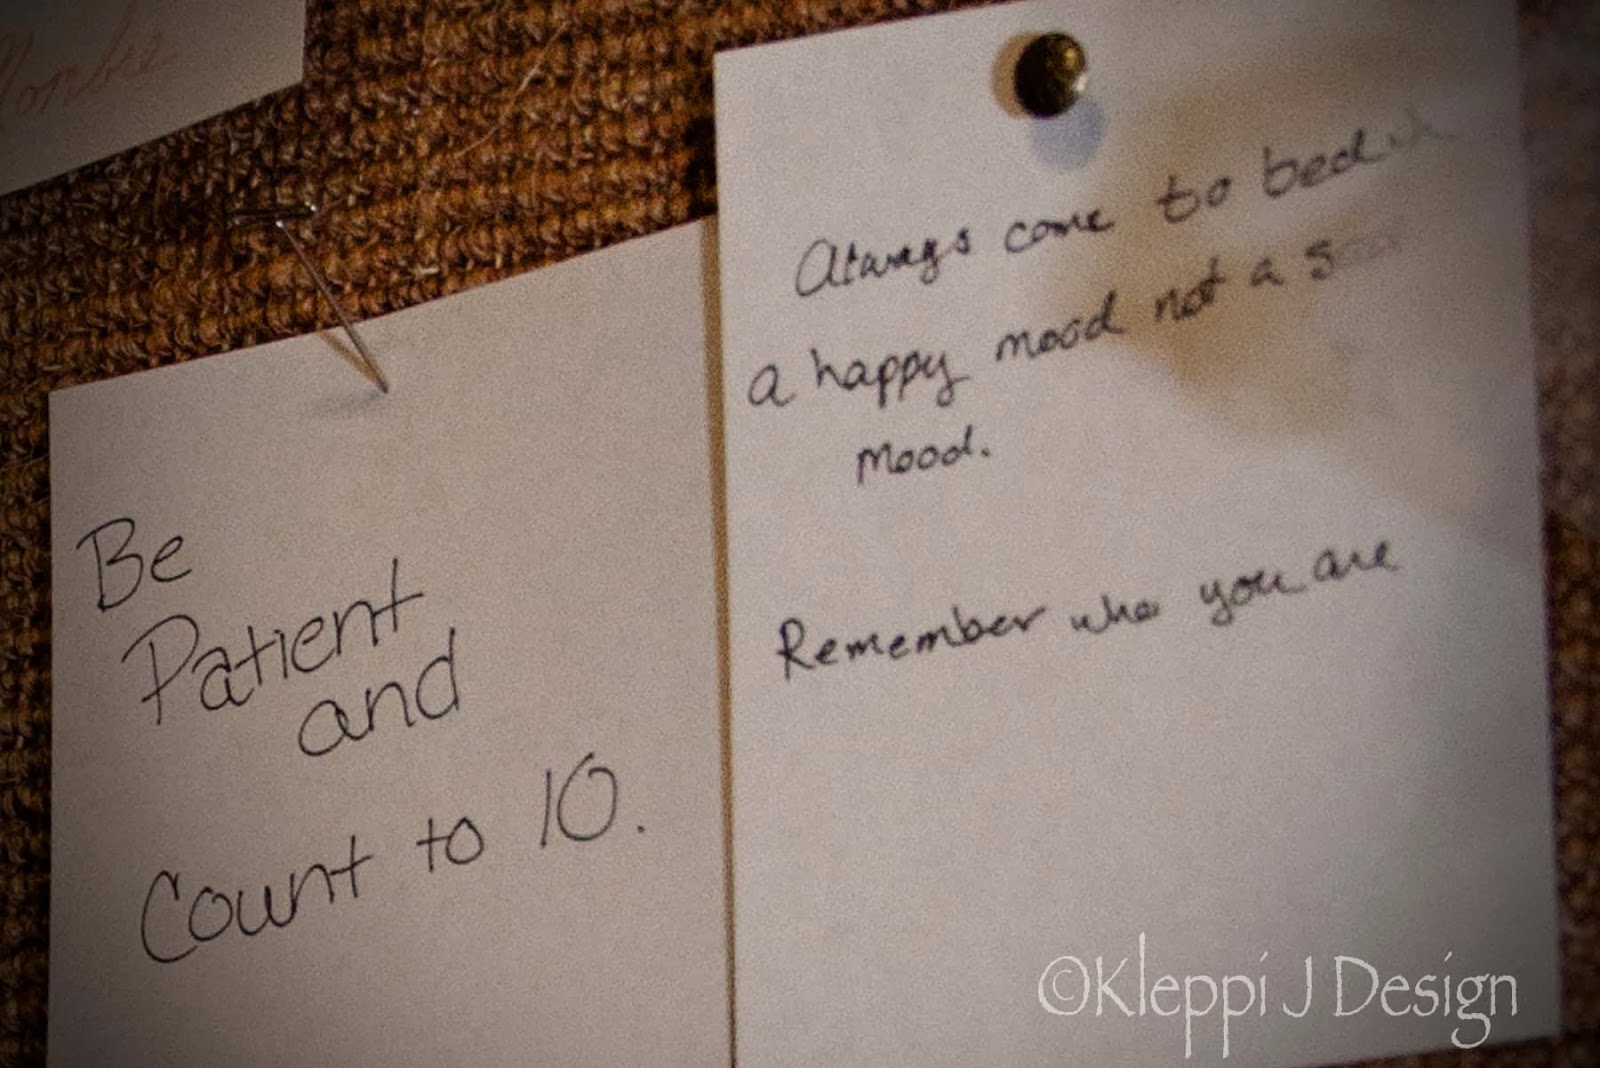 Be
Patient
and
Count to 10.
Always come to bed in
a happy mood not a
mood.
Remember who you are
©Kleppi J Design